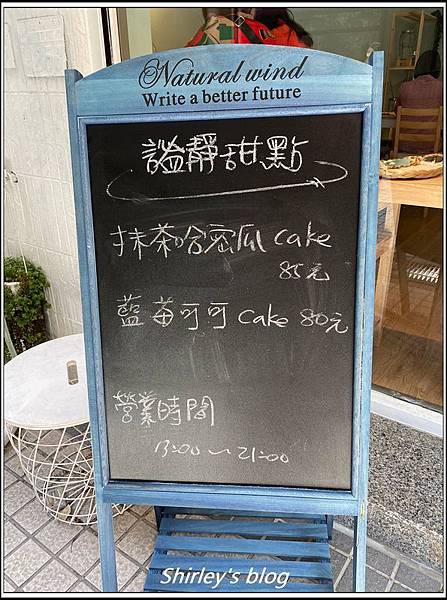 Natural wind
Write a better future
謐靜甜點
抹茶哈密瓜 cake
85元
藍莓可可 cake 80元
營業時間
13:00～21:00
Shirley's blog